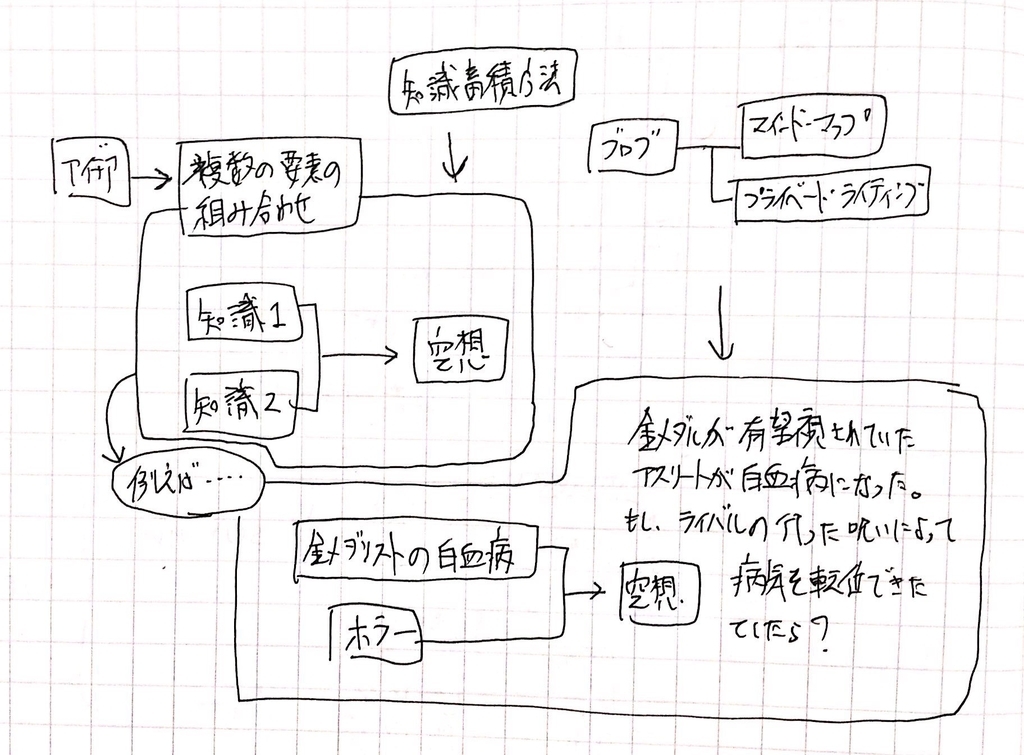 知識畜積方法
アイデア
複数の要素の
組み合わせ
ブログ
マインド・マップ
プライベート・ライティング
知識1
知識2
空想
例えば……
金メダリストの白血病
ホラー
空想
金メダルが有望視されていた
アスリートが白血病になった。
もし、ライバルの行った呪いによって
病気を転位できた
でしたら?